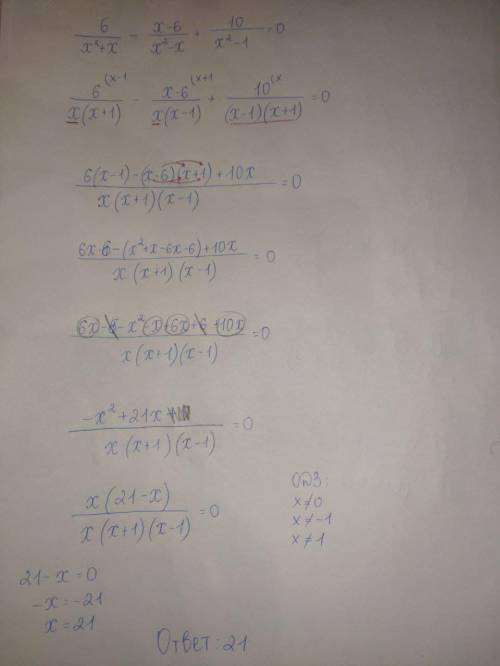 6/(x²+x) - (x-6)/(x²-x) + 10/(x²-1) = 0
6^(x-1/(x(x+1)) - x-6^(x+1/(x(x-1)) + 10^(x/((x-1)(x+1)) = 0
(6(x-1)-(x-6)(x+1)+10x)/(x(x+1)(x-1)) = 0
(6x-6-(x²+x-6x-6)+10x)/(x(x+1)(x-1)) = 0
(6x-6-x²-x+6x+6+10x)/(x(x+1)(x-1)) = 0
(-x²+21x)/(x(x+1)(x-1)) = 0
x(21-x)/(x(x+1)(x-1)) = 0
ОДЗ:
x≠0
x≠-1
x≠1
21-x=0
-x=-21
x=21
Ответ: 21